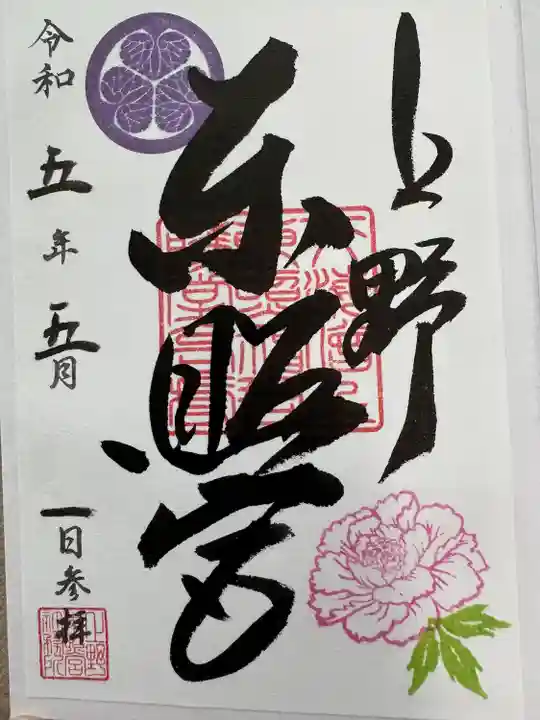 上野
東照宮
令和五年五月一日参拝
上野東照宮社務所